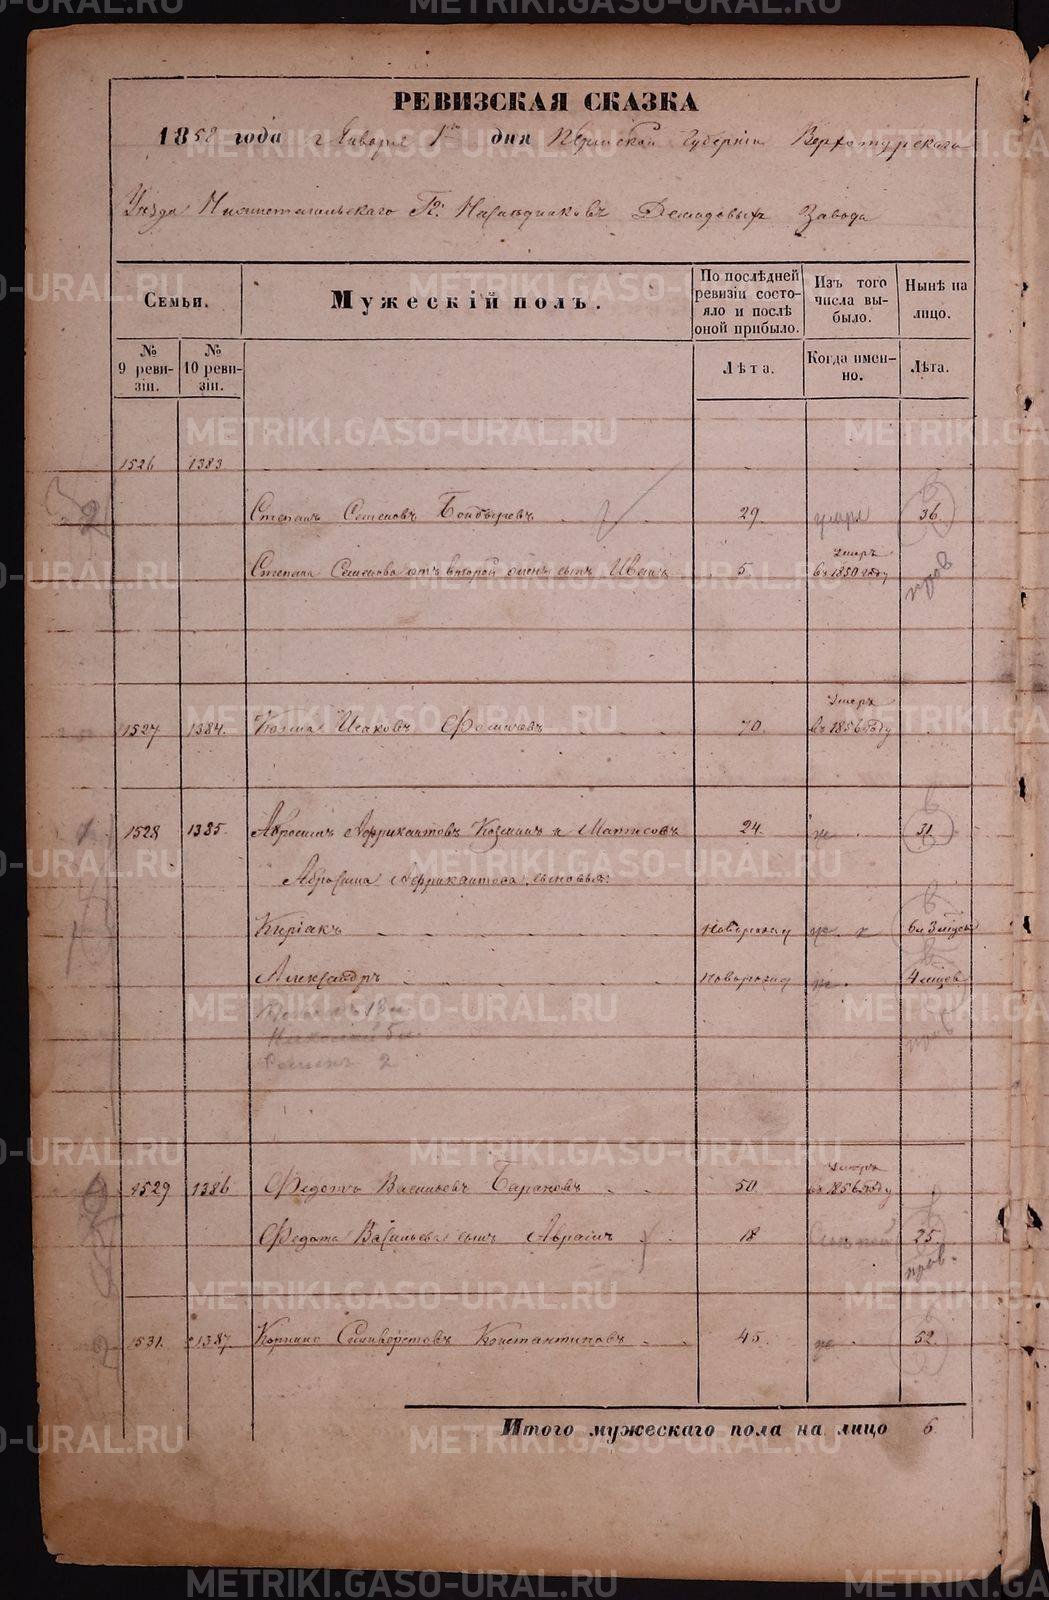 РЕВИЗСКАЯ СКАЗКА
1858 года Января 1го дня Пермской Губерніи Верхотурскаго
Уѣзда Нижнетагильскаго Гг. Наслѣдниковъ Демидовыхъ Завода
Семьи.
Мужескій полъ.
По послѣдней ревизіи состояло и послѣ оной прибыло.
Изъ того числа выбыло.
Нынѣ на лицо.
№ 9 ревизіи.
№ 10 ревизіи.
Лѣта.
Когда именно.
Лѣта.
1526 1383
Степанъ Семеновъ Бондыревъ 29. 36.
Степана Семенова отъ второй жены сынъ Иванъ 5. Умеръ въ 1850 году
1527 1384. Козма Исаковъ Фомичевъ 70. Умеръ въ 1856 году
1528 1385. Абросимъ Аффрикантовъ Козминъ и Матисовъ 24. 31.
Абросима Аффрикантова сыновья:
Киріакъ новорожд 6 и 3 мѣсяц
Александръ новорожд 4 мѣсяц
Николай
Семенъ 2
1529 1386 Федотъ Васильевъ Барановъ 50. Умеръ въ 1856 году
Федота Васильева сынъ Авраамъ 18 25.
1531. 1387. Корнило Селиверстовъ Константиновъ 45. 52.
Итого мужескаго пола на лицо 6.
METRIKI.GASO-URAL.RU